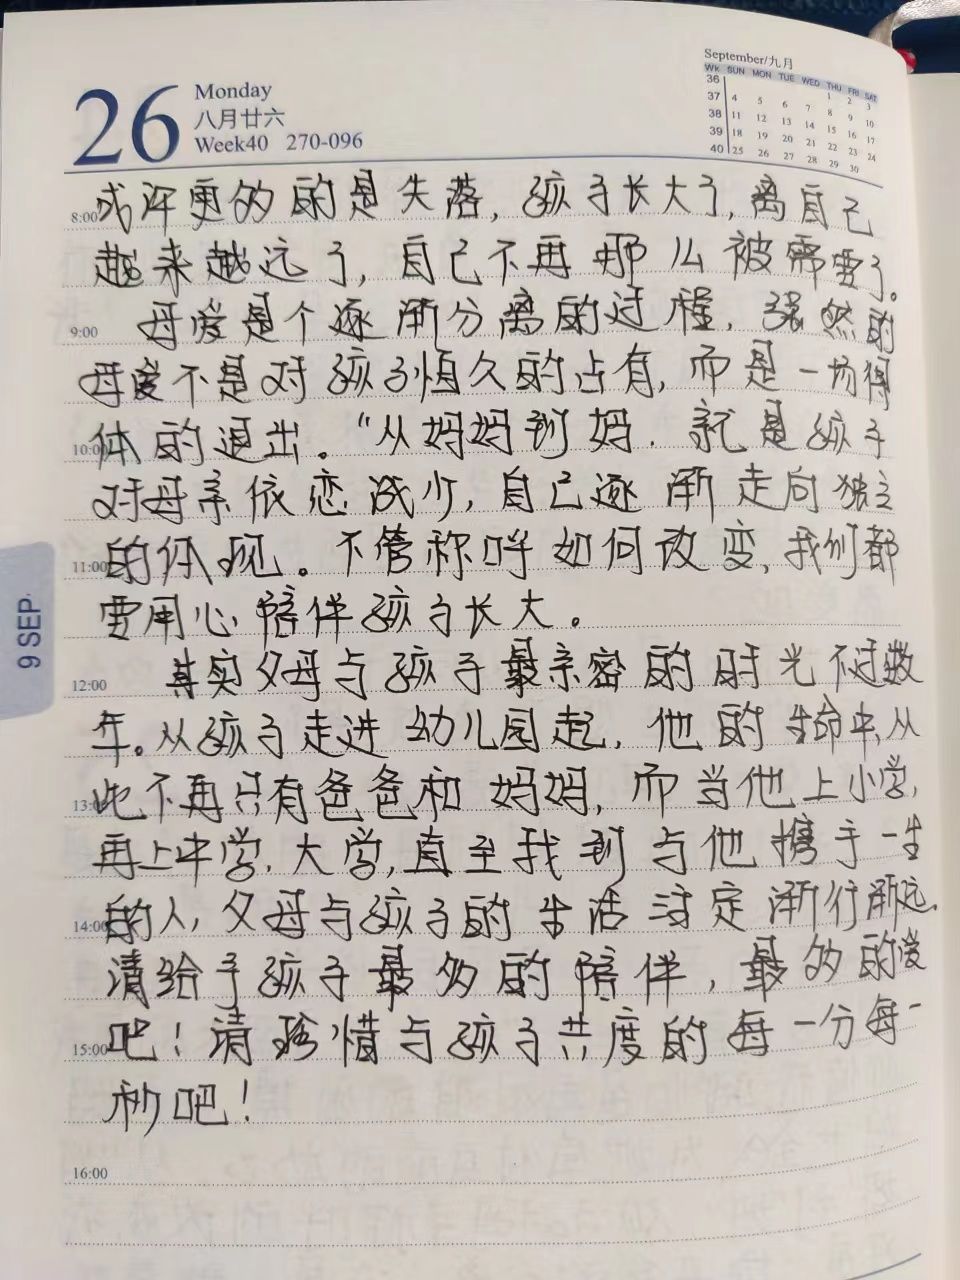 September/九月
Wk SUN MON TUE WED THU FRI SAT
36 1 2 3
37 4 5 6 7 8 9 10
38 11 12 13 14 15 16 17
39 18 19 20 21 22 23 24
40 25 26 27 28 29 30
26 Monday
八月廿六
Week40 270-096
8:00 或许更多的是失落，孩子长大了，离自己
越来越远了，自己不再那么被需要了。
9:00 母爱是个逐渐分离的过程，强然的
母爱不是对孩子恒久的占有，而是一场得
10:00 体的退出。“从妈妈到妈．就是孩子
对母亲依恋减少，自己逐渐走向独立
11:00 的体现。不管称呼如何改变，我们都
要用心陪伴孩子长大。
12:00 其实父母与孩子最亲密的时光不过数
年。从孩子走进幼儿园起，他的生命中，从
13:00 此不再只有爸爸和妈妈，而当他上小学，
再上中学．大学，直至找到与他携手一生
14:00 的人，父母与孩子的生活注定渐行渐远．
请给予孩子最多的陪伴，最多的爱
15:00 吧！请珍惜与孩子共度的每一分每一
秒吧！
16:00
9 SEP.